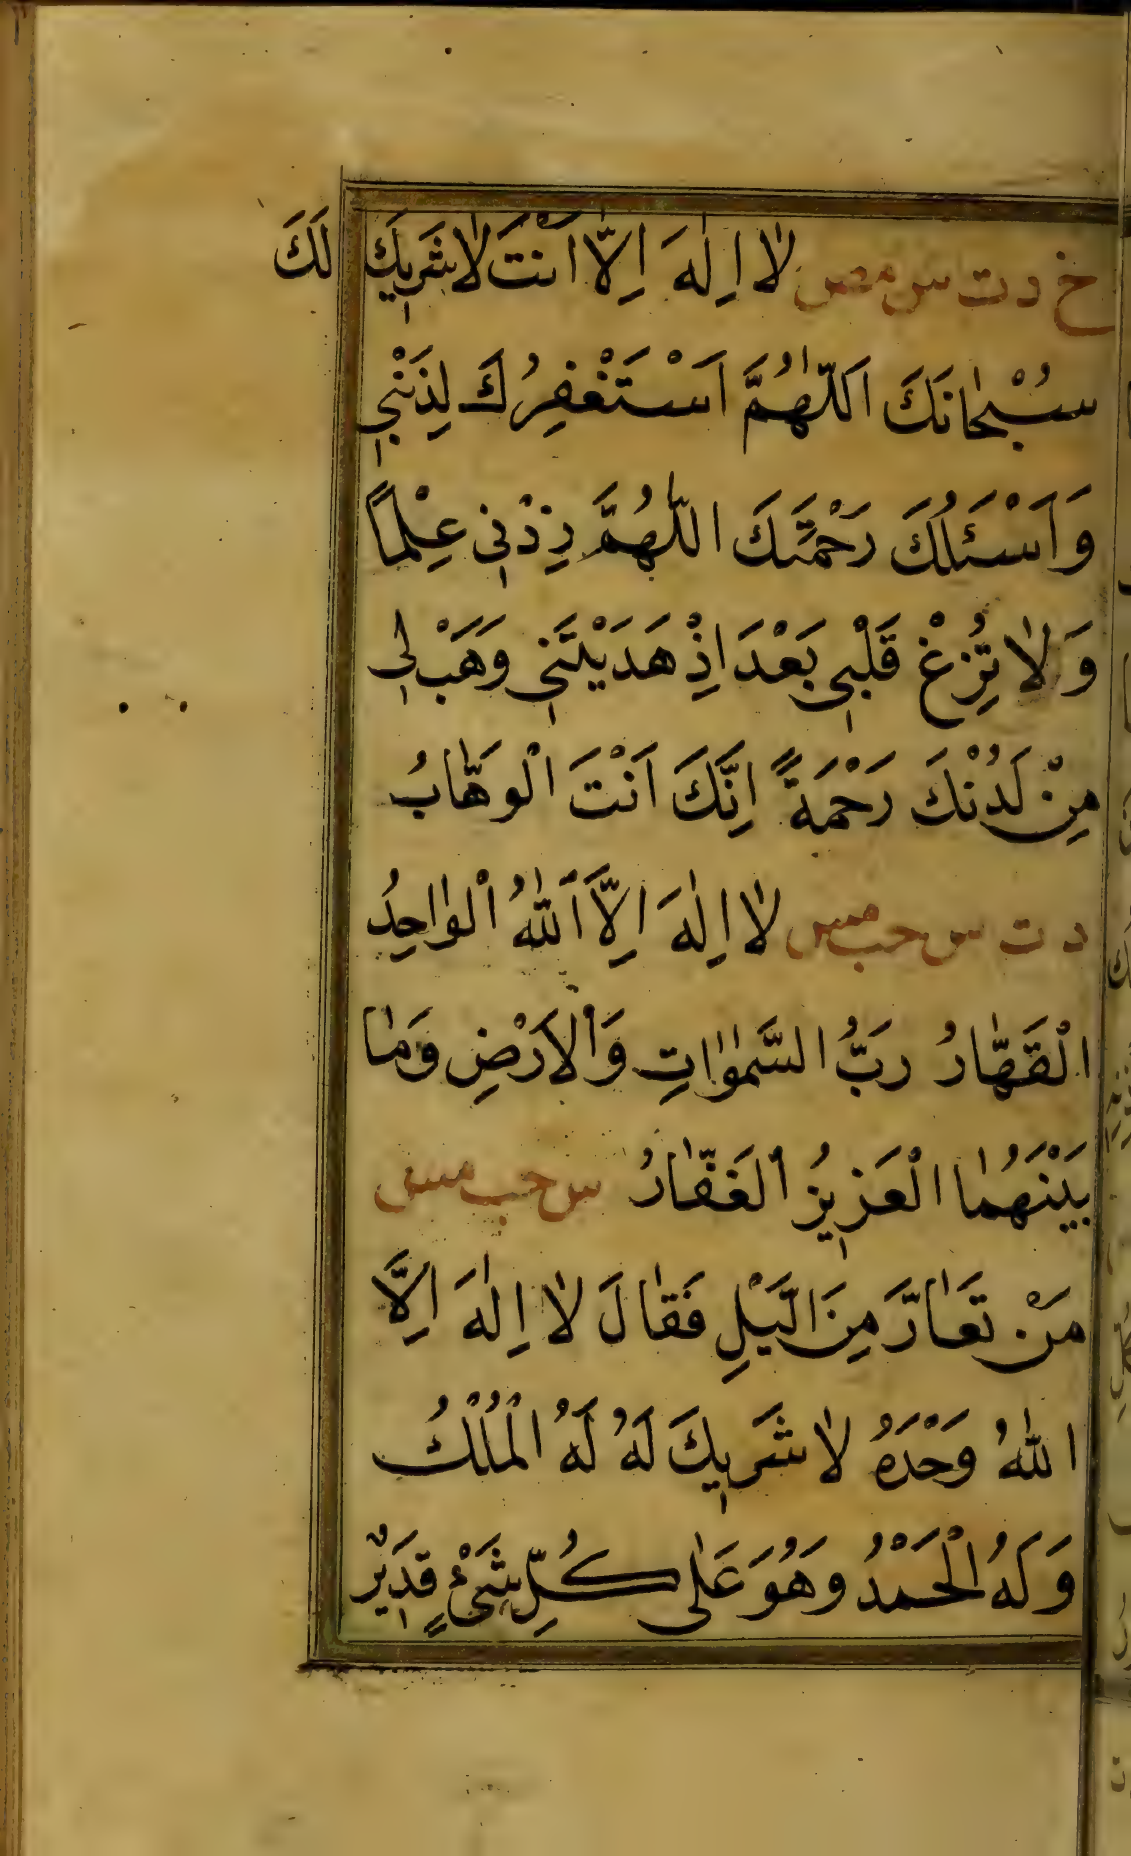 خ د ت س مص لَا اِلٰهَ اِلَّا اَنْتَ لَا شَرِيكَ لَكَ
سُبْحَانَكَ اَللّٰهُمَّ اَسْتَغْفِرُكَ لِذَنْبِي
وَاَسْئَلُكَ رَحْمَتَكَ اللّٰهُمَّ زِدْنِي عِلْمًا
وَلَا تُزِغْ قَلْبِي بَعْدَ اِذْ هَدَيْتَنِي وَهَبْ لِي
مِنْ لَدُنْكَ رَحْمَةً اِنَّكَ اَنْتَ الْوَهَّابُ
د ت س حب مس لَا اِلٰهَ اِلَّا اللّٰهُ الْوَاحِدُ
الْقَهَّارُ رَبُّ السَّمٰوَاتِ وَالْاَرْضِ وَمَا
بَيْنَهُمَا الْعَزِيزُ الْغَفَّارُ س حب مس
مَنْ تَعَارَّ مِنَ الَّيْلِ فَقَالَ لَا اِلٰهَ اِلَّا
اللّٰهُ وَحْدَهُ لَا شَرِيكَ لَهُ لَهُ الْمُلْكُ
وَلَهُ الْحَمْدُ وَهُوَ عَلٰى كُلِّ شَيْءٍ قَدِيرٌ